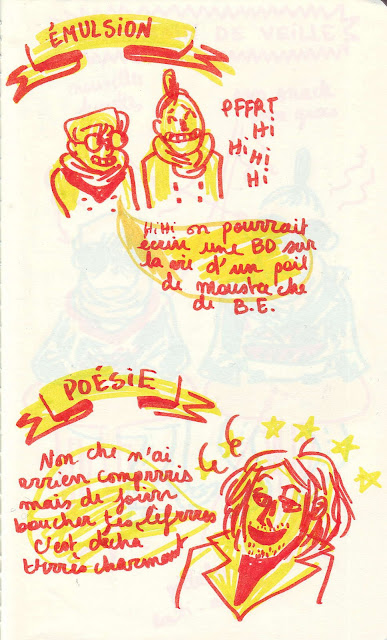 ÉMULSION
PFFRT
Hi
Hi Hi
Hi
HiHi on pourrait
écrire une BD sur
la vie d'un poil
de moustache
de B.E.
POÉSIE
Non che n'ai
errien comprris
mais de fouirr
boucher tes lèfrres
c'est décha
trrrès charmant